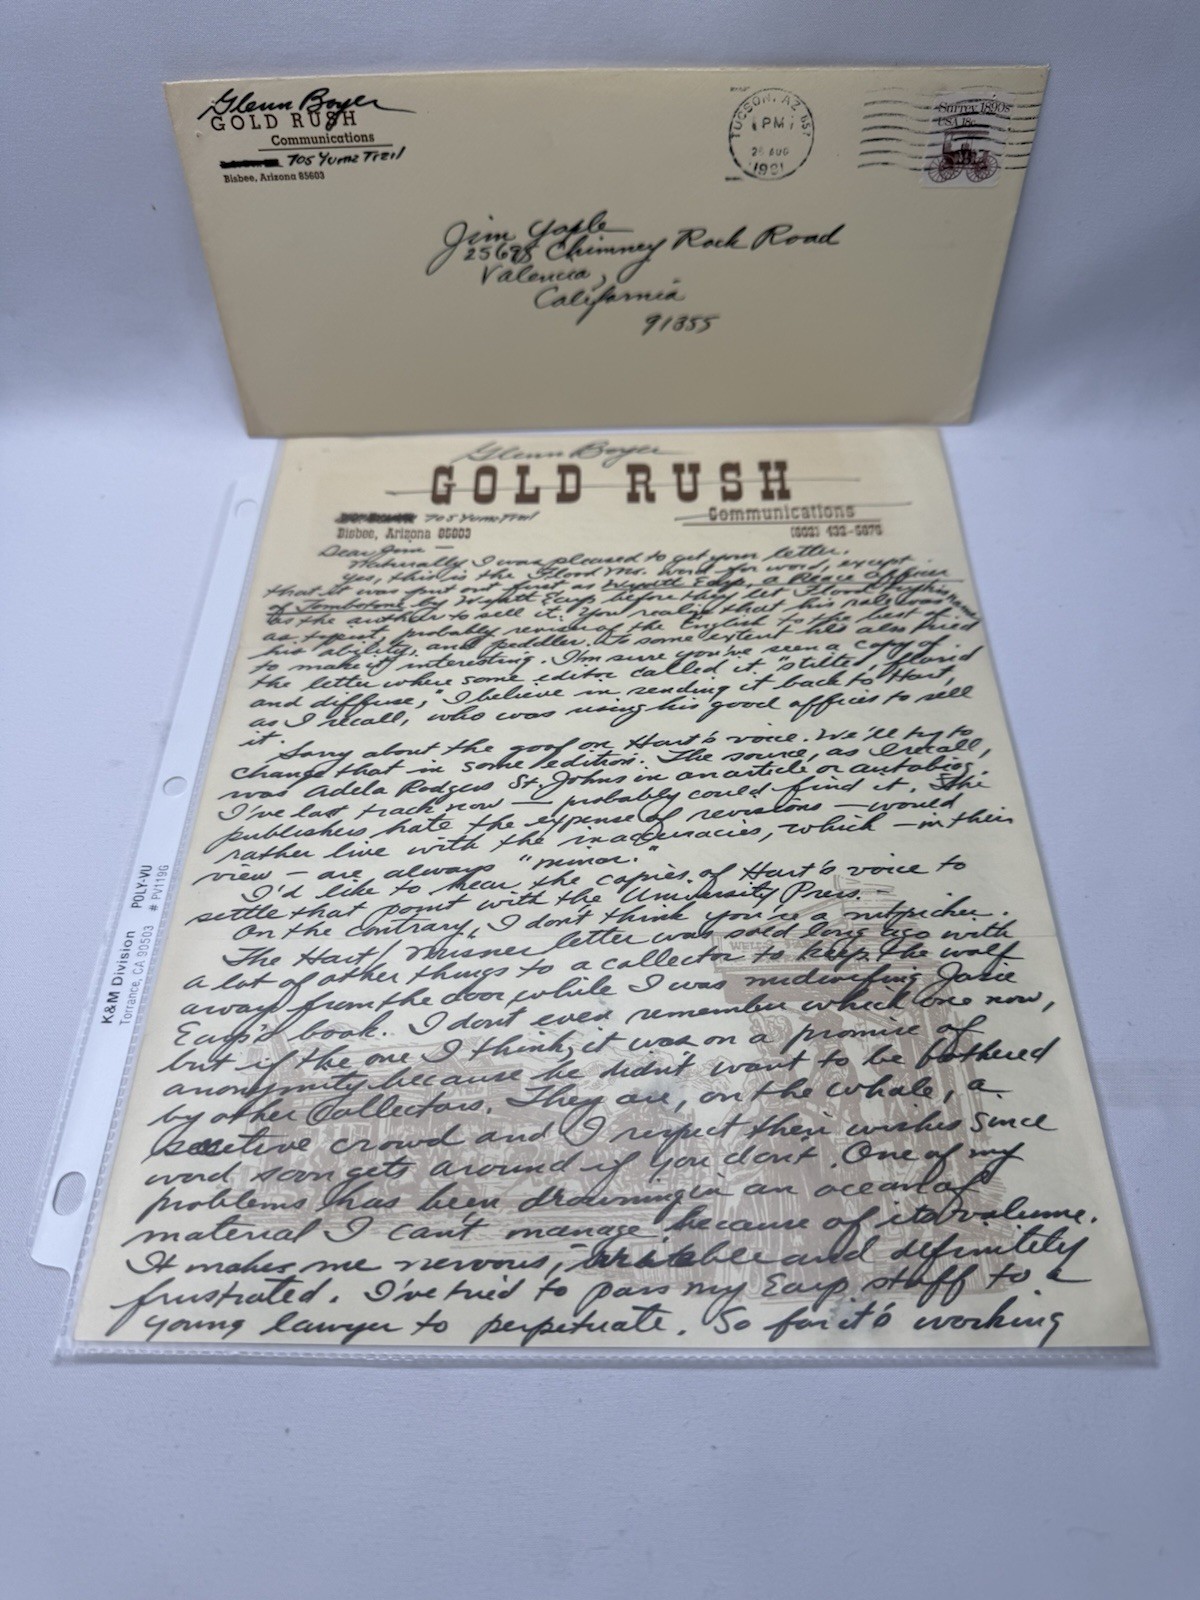 Glenn Boyer
GOLD RUSH
Communications
705 Yuma Trail
Bisbee, Arizona 85603
TUCSON, AZ 857
PM
AUG
1981
Surrey 1890s
USA 18c
Jim Yaple
Chimney Rock Road
Valencia,
California
91355
Glenn Boyer
GOLD RUSH
Communications
705 Yuma Trail
Bisbee, Arizona 85603
(602) 432-5875
Dear Jim —
Naturally I was pleased to get your letter.
Yes, this is the Flood Ms. word for word, except
that it was put out first as Wyatt Earp, a Peace Officer
of Tombstone by Wyatt Earp before they let Flood put his name
as the author to sell it. You realize that his role was
as typist, probably reviser of the English to the best of
his ability, and peddler. To some extent he also tried
to make it interesting. I'm sure you've seen a copy of
the letter where some editor called it "stilted, florid
and diffuse," I believe in sending it back to Hart,
as I recall, who was using his good offices to sell
it.
Sorry about the goof on Hart's voice. We'll try to
change that in some edition. The source, as I recall,
was Adela Rodgers St. Johns in an article or autobiog.
I've lost track now — probably could find it. The
publishers hate the expense of revisions — would
rather live with the inaccuracies, which — in their
view — are always "minor."
I'd like to hear the copies of Hart's voice to
settle that point with the University Press.
On the contrary, I don't think you're a nitpicker.
The Hart/Misner letter was sold long ago with
a lot of other things to a collector to keep the wolf
away from the door while I was midwifing Josie
Earp's book. I don't even remember which one now,
but if the one I think, it was on a promise of
anonymity because he didn't want to be bothered
by other collectors. They are, on the whole, a
secretive crowd and I respect their wishes since
word soon gets around if you don't. One of my
problems has been drowning in an ocean of
material I can't manage because of its volume.
It makes me nervous, irritable and definitely
frustrated. I've tried to pass my Earp stuff to a
young lawyer to perpetuate. So far it's working
WELLS FARGO
K&M Division POLY-VU
Torrance, CA 90503 # PV119G